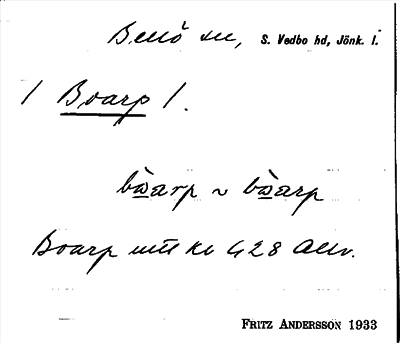 Bellö sn, S. Vedbo hd, Jönk. l.
/ Boarp /.
bòarp ~ bòarp
Boarp utt kv G 28 Allv.
FRITZ ANDERSSON 1933